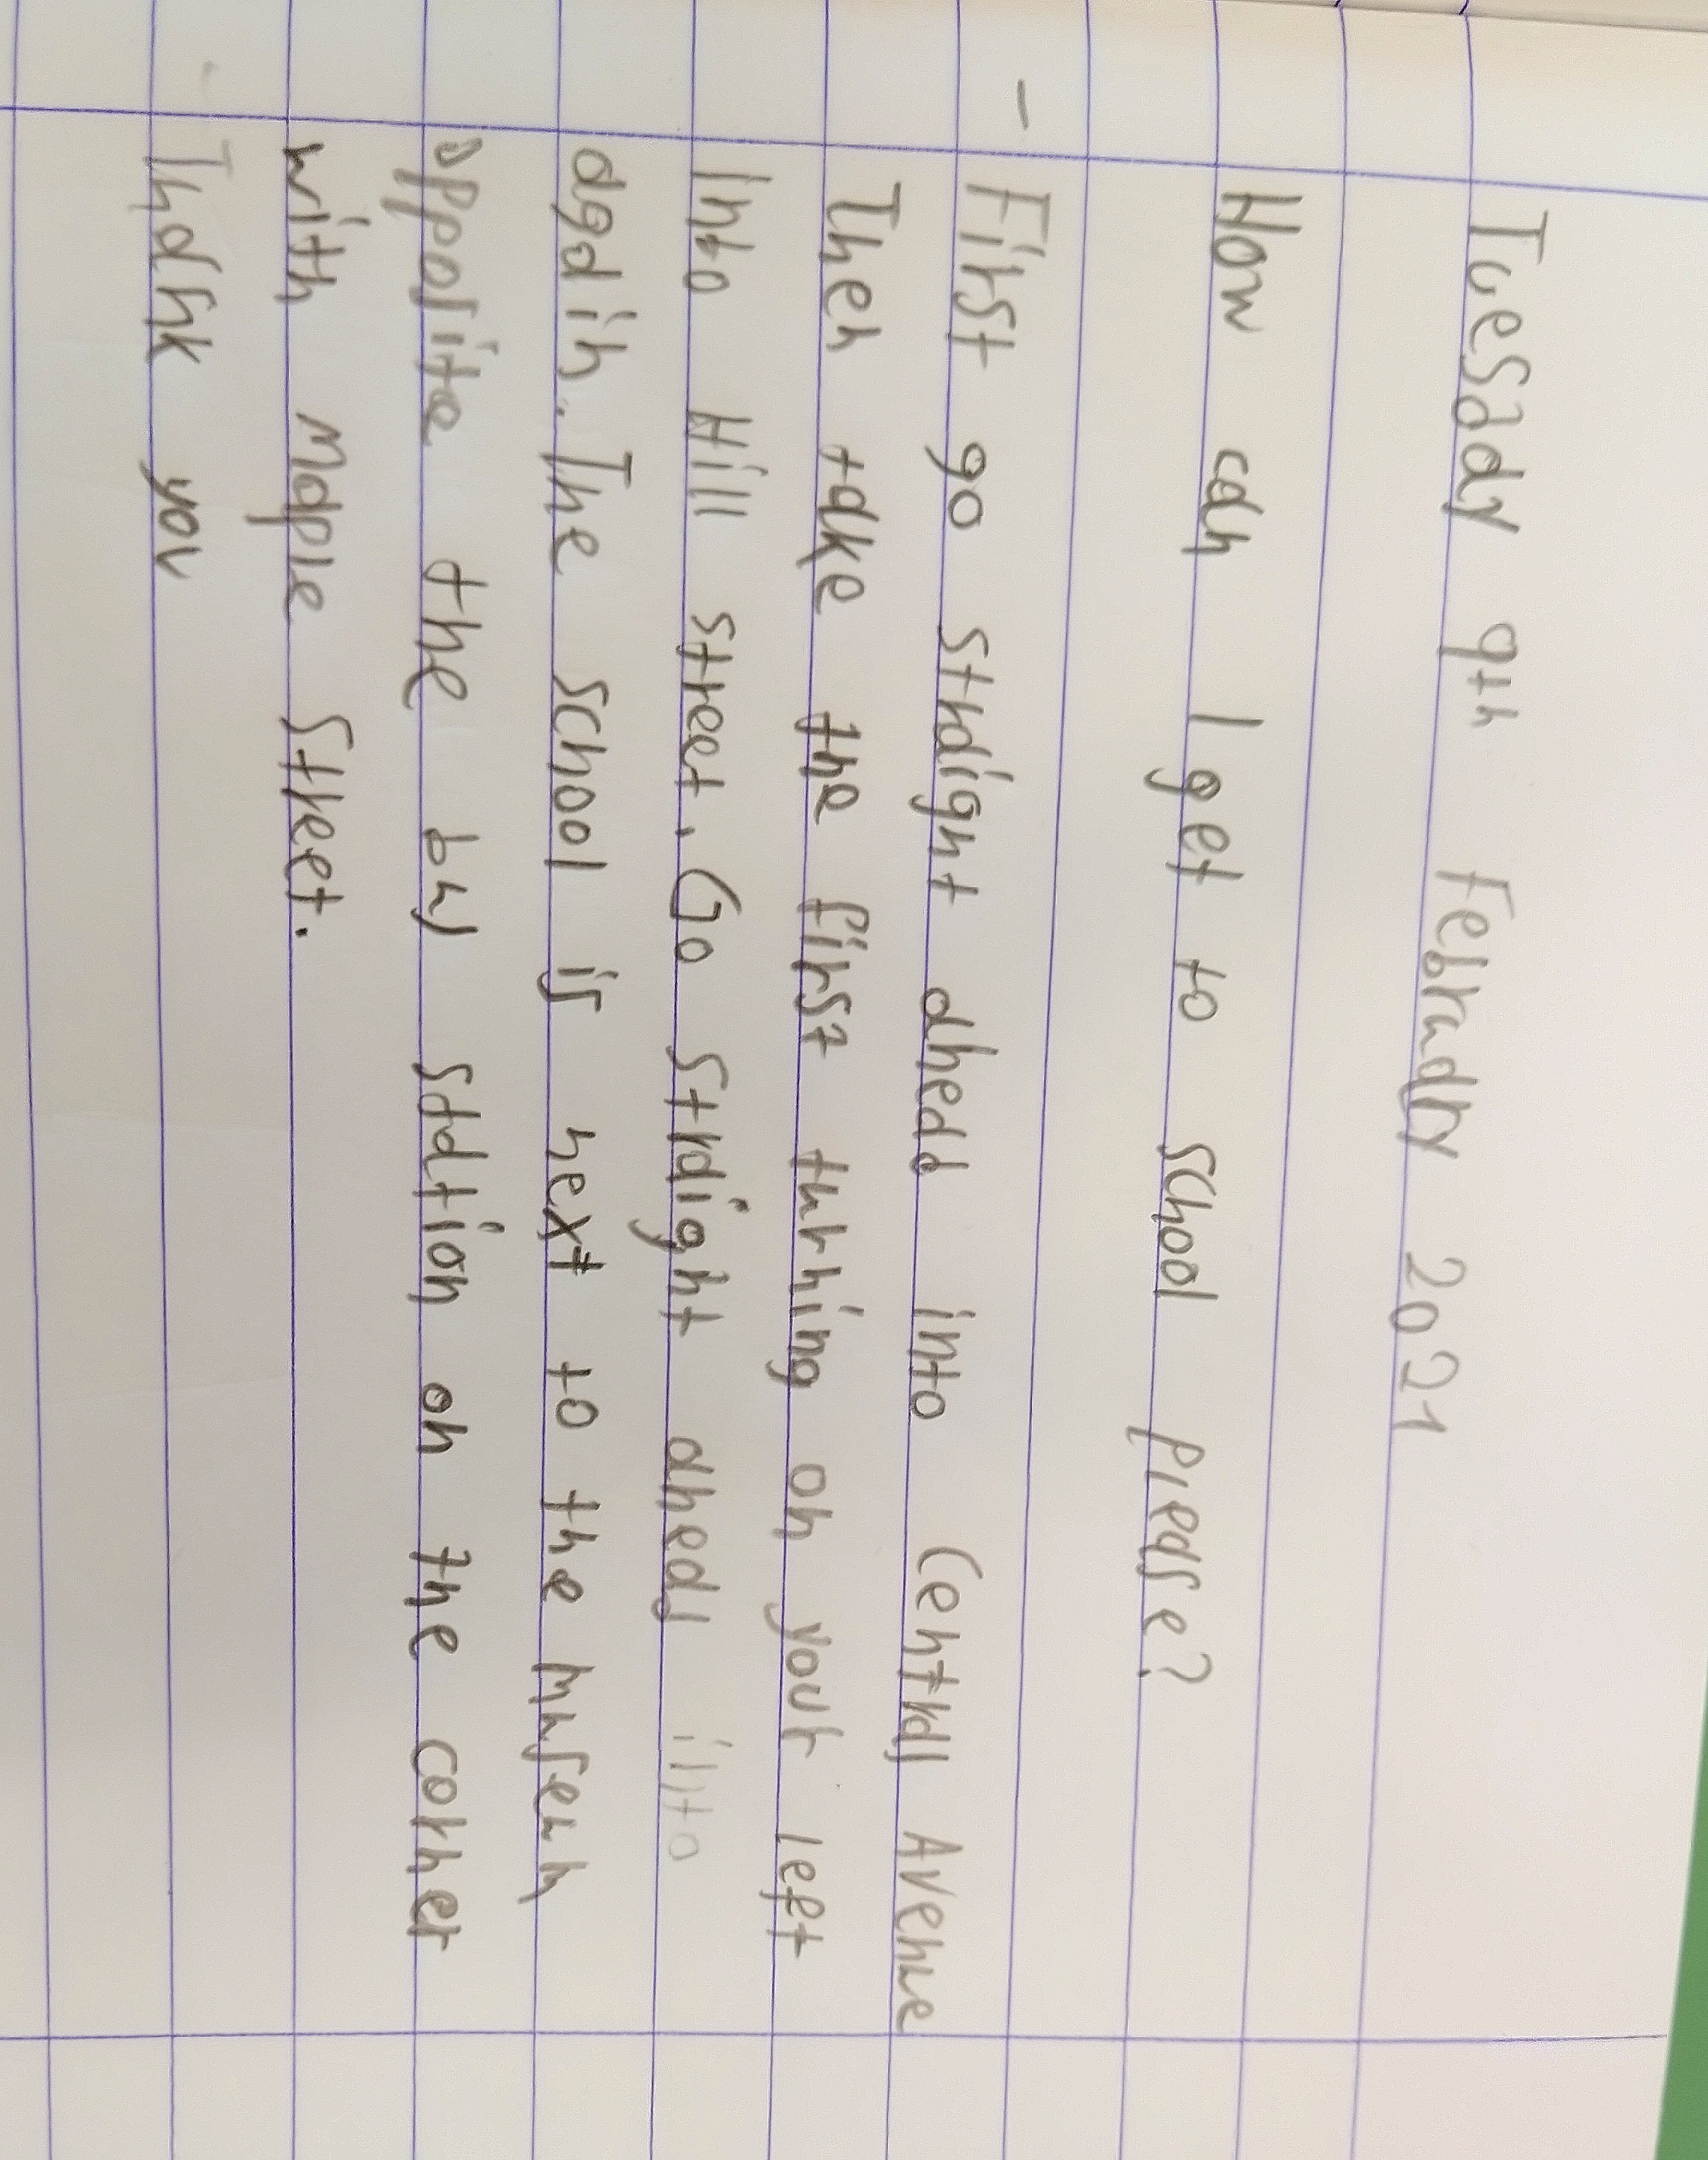 Tuesday 9th February 2021
How can I get to school please?
- First go straight ahead into Central Avenue
Then take the first turning on your left
into Hill street. Go straight ahead into
again. The school is next to the museum
opposite the bus station on the corner
with Maple Street.
Thank you